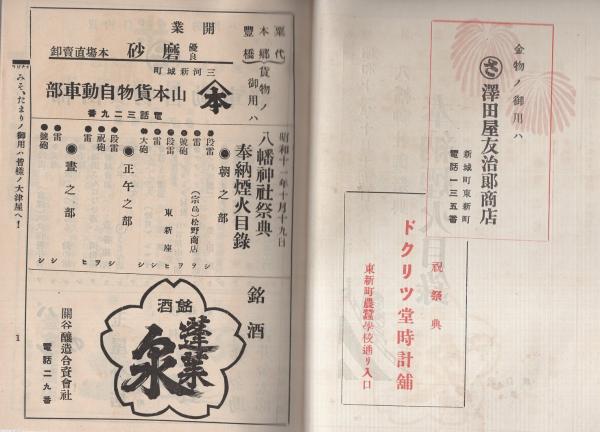 金物ノ御用ハ
さ
澤田屋友治郎商店
新城町東新町
電話一三五番
祝祭典
ドクリツ堂時計舗
東新町農蠶學校通リ入口
粟代
本郷
豊橋
貨物ノ御用ハ
開業
優良
磨砂
本場直賣卸
三河新城町
本
山本貨物自動車部
電話三二九番
昭和十一年十月十九日
八幡神社祭典
奉納煙火目錄
●朝之部
段雷
(宗高)松野商店
シ
號砲
ヲ
段雷
東新座
ヒ
大砲
シ
雷
シ
●正午之部
段雷
ヒ
祝砲
ヲ
雷
シ
●晝之部
雷
シ
號砲
シ
銘酒
銘酒
蓬莱泉
關谷釀造合資會社
電話二九番
みそ、たまりノ御用ハ皆様ノ大津屋へ!
1